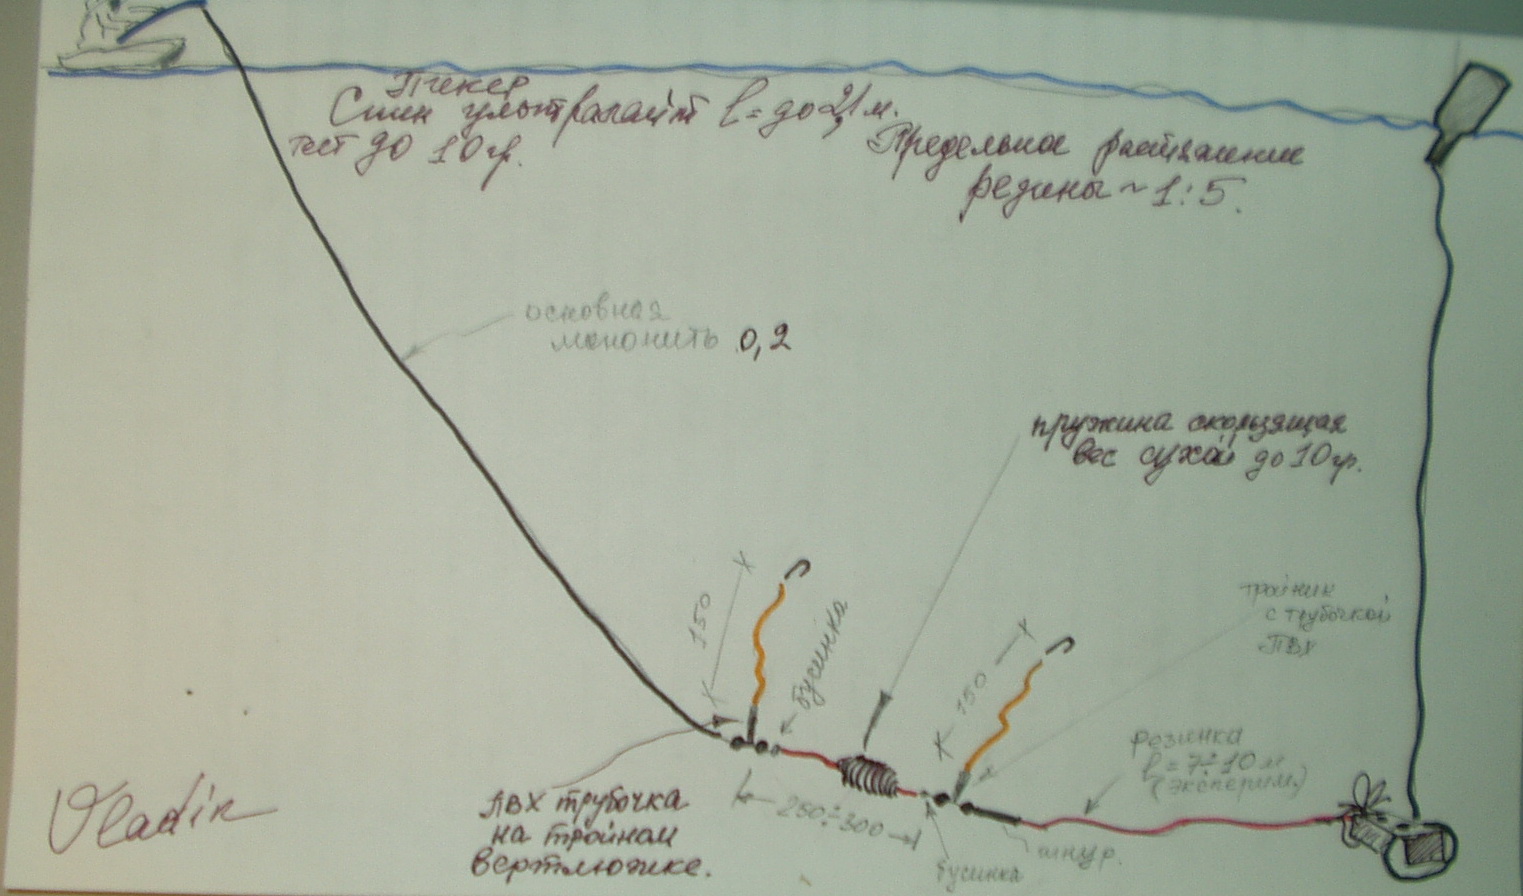 Пикер
Спин ультралайт l = до 2,1 м.
тест до 10 гр.
Предельное растяжение
резины ~ 1:5.
основная
мононить 0,2
пружина скользящая
вес сухой до 10 гр.
150
бусинка
150
тройник
с трубочкой
ПВХ
резинка
l = 7÷10 м
(эксперим.)
ПВХ трубочка
на тройном
вертлюжке.
250÷300
бусинка
шнур.
Vladin